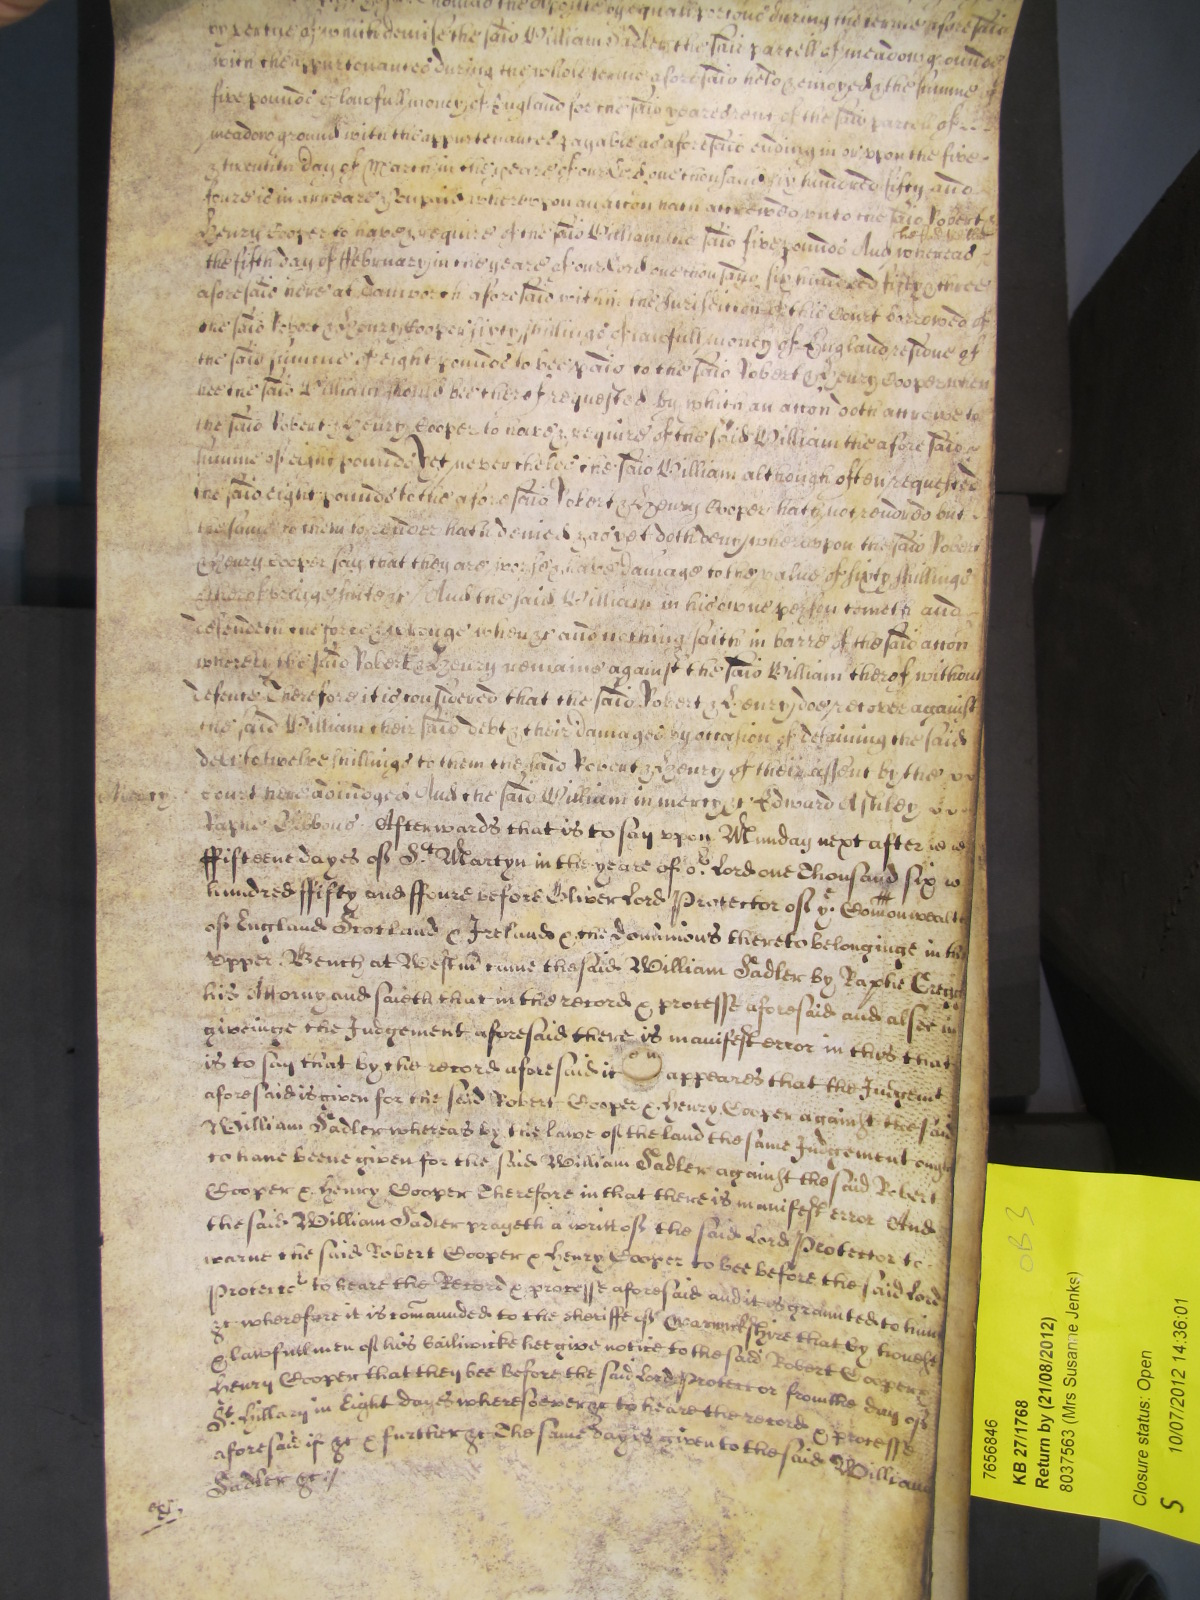 by vertue of which demise the said William Sadler the said parcell of meadow ground
with the appurtenances during the whole terme aforesaid held & enioyed & the summe of
five pounds of lawfull money of England for the said yeares rent of the said parcell of
meadow ground with the appurtenances payable as aforesaid ending in or upon the five
& twentith day of March in the yeare of our Lord one thousand six hundred fifty and
foure is in arreare & unpaid whereupon an accon hath accrewed unto the said Robert &
Henry Cooper to have & require of the said William the said five pounds And whereas
the fifth day of ffebruary in the yeare of our Lord one thousand six hundred fifty & three
aforesaid here at Tamworth aforesaid within the Jurisdiction of this Court borrowed of
the said Robert & Henry Cooper sixty shillings of lawfull money of England residue of
the said summe of eight pounds to bee paid to the said Robert & Henry Cooper when
hee the said William should bee therof requested by which an accon doth accrewe to
the said Robert & Henry Cooper to have & require of the said William the aforesaid
summe of eight pounds Yet nevertheles the said William although often requested
the said eight pounds to the aforesaid Robert & Henry Cooper hath not rendred but
the same to them to render hath denied & as yet doth deny wherupon the said Robert
& Henry Cooper say that they are worse & have damage to the value of sixty shillings
& therof bringe suite &c / And the said William in his owne person cometh and
defendeth the force & wronge when &c and nothing saith in barre of the said accon
whereby the said Robert & Henry remaine against the said William therof without
defence Therefore it is considered that the said Robert & Henry doe recover against
the said William their said debt & their damages by occasion of detaining the said
debt to twelve shillings to them the said Robert & Henry of their assent by the
Mercy. court here adiudged And the said William in mercy &c Edward Astley
Rayne Gibbons Afterwards that is to say upon Munday next after
ffifteene dayes of St Martyn in the yeare of or Lord one Thousand six
hundred ffifty and ffoure before Oliver Lord Protector of ye Comonwealth
of England Scotland & Ireland & the dominions thereto belonginge in the
Upper Bench at Westmr came the said William Sadler by Raphe
his Attorny and saieth that in the record & processe aforesaid and alsoe in
giveinge the Judgement aforesaid there is manifest error in this that
is to say that by the record aforesaid it appeares that the Judgemt
aforesaid is given for the said Robert Cooper & Henry Cooper against the said
William Sadler whereas by the lawe of the land the same Judgement ought
to have beene given for the said William Sadler against the said Robert
Cooper & Henry Cooper Therefore in that there is manifest error And
the said William Sadler prayeth a writt of the said Lord Protector to
warne the said Robert Cooper & Henry Cooper to bee before the said Lord
Protector to heare the Record & processe aforesaid and it is graunted to him
&c wherefore it is comaunded to the sheriffe of Warwickshire that by honest
& lawfull men of his bailiwicke hee give notice to the said Robert Cooper &
Henry Cooper that they bee before the said Lord Protector from the day of
St. Hillary in Eight dayes wheresoever &c to heare the record & processe
aforesaid if &c & further &c The same day is given to the said William
Sadler &c //
exr.
OB 3
7656846
KB 27/1768
Return by (21/08/2012)
8037563 (Mrs Susanne Jenks)
Closure status: Open
10/07/2012 14:36:01
S